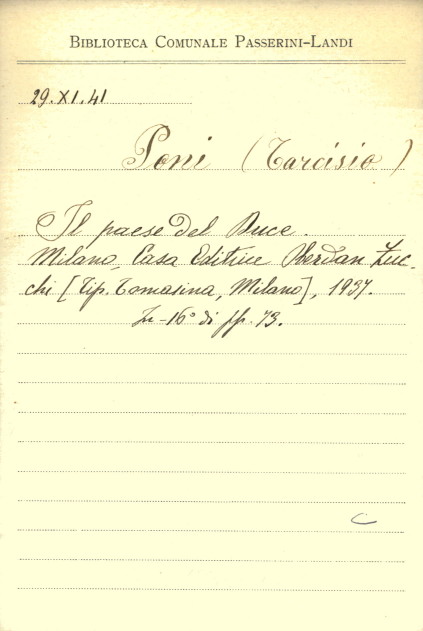 BIBLIOTECA COMUNALE PASSERINI-LANDI
29.XI.41
Poni (Tarcisio)
Il paese del Duce.
Milano, Casa Editrice Oberdan Zuc-
chi [Tip. Tomasina, Milano], 1937.
In-16° di pp. 73.